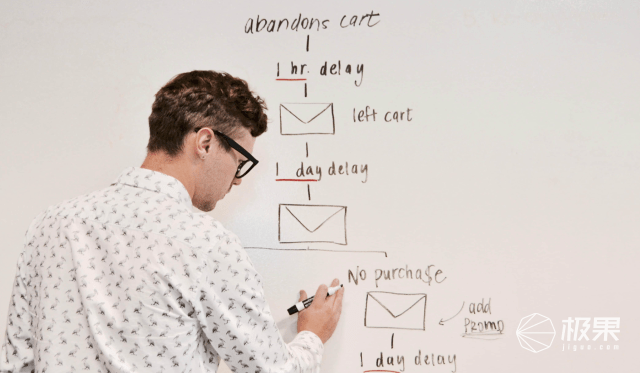 abandons cart
1 hr. delay
left cart
1 day delay
No purchase
add
PROMO
1 day delay
极果
jiguo.com